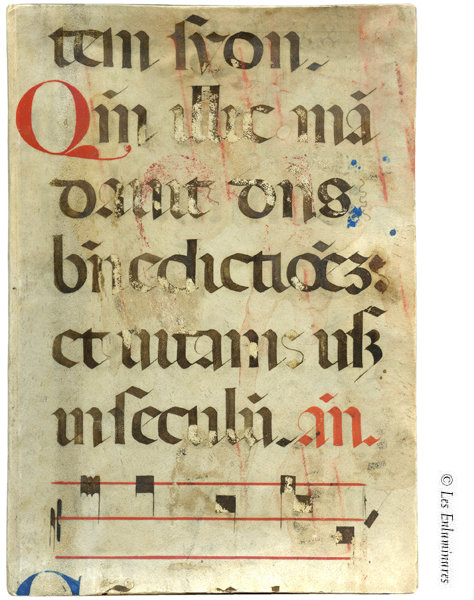 tem syon.
Qm̄ illic mā
dauit dn̄s
bn̄edictiōez:
et uitam usqȝ
in seculū. an̄.
© Les Enluminures